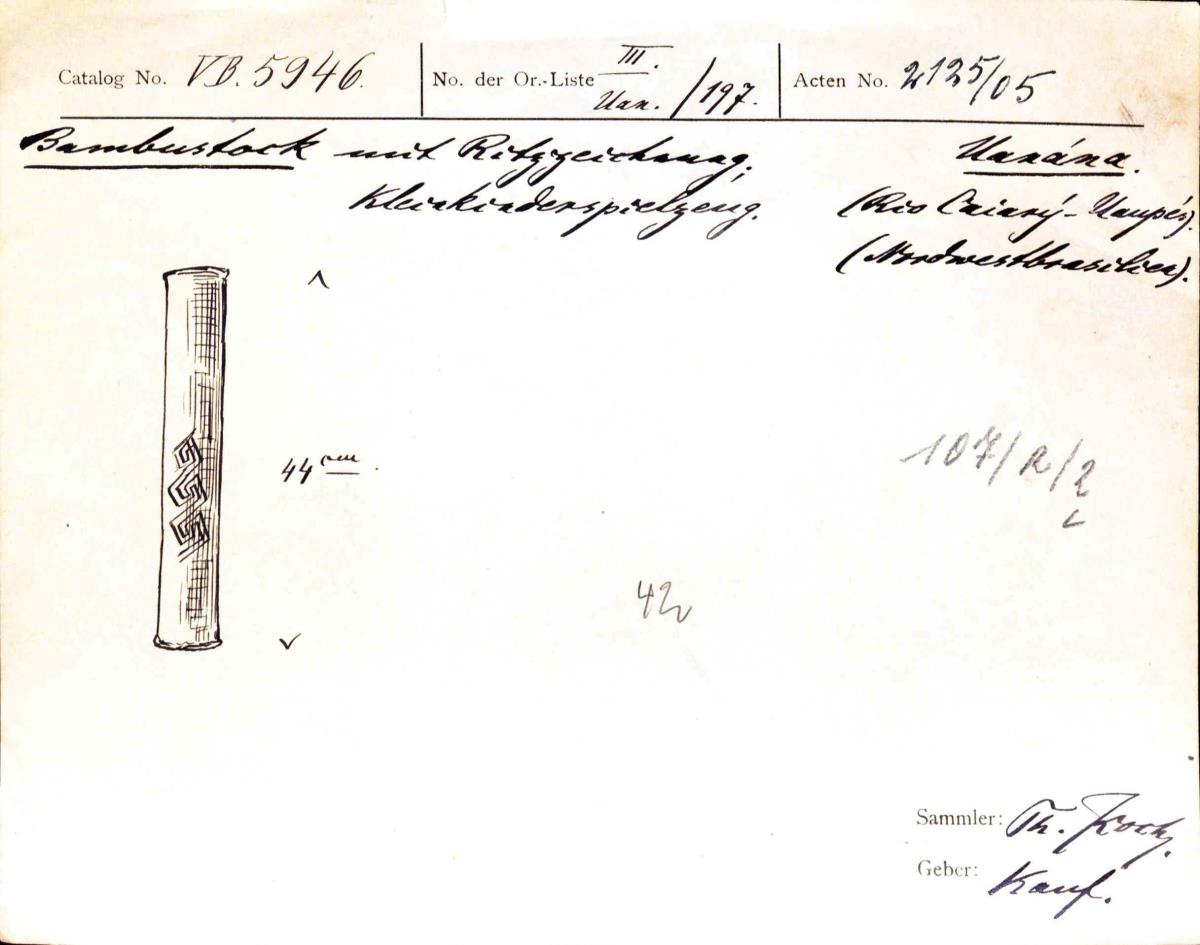 Catalog No. VB. 5946.
No. der Or.-Liste III. Uan. /197.
Acten No. 2125/05
Bambustock mit Ritzzeichnung, Uanána.
Kleinkinderspielzeug. (Rio Caiarý-Uaupés).
(Nordwestbrasilien).
44 cm.
107/R/2
42
Sammler: Th. Koch.
Geber: Kauf.